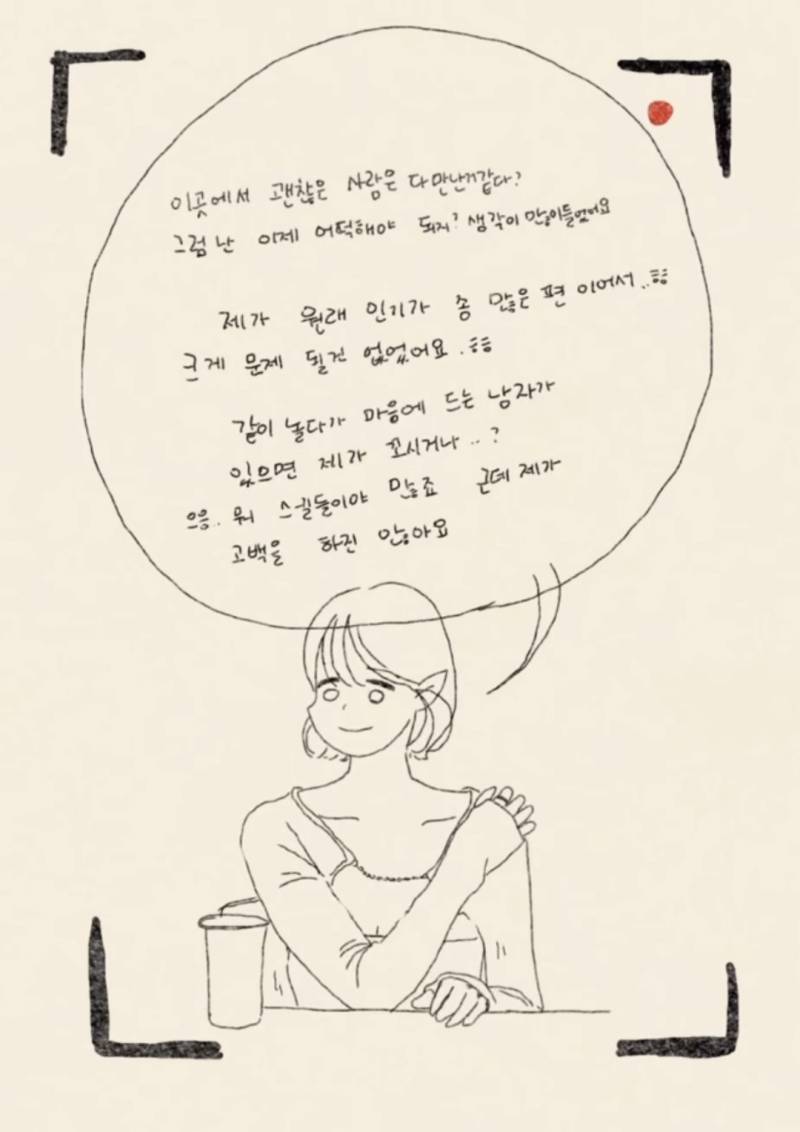 이곳에서 괜찮은 사람은 다 만난거같다?
그럼 난 이제 어떡해야 되지? 생각이 많이들었어요
제가 원래 인기가 좀 많은 편 이어서..ㅎㅎ
크게 문제 될건 없었어요.ㅎㅎ
같이 놀다가 마음에 드는 남자가
있으면 제가 꼬시거나..?
으음.. 뭐 스킬들이야 많죠 근데 제가
고백을 하진 않아요